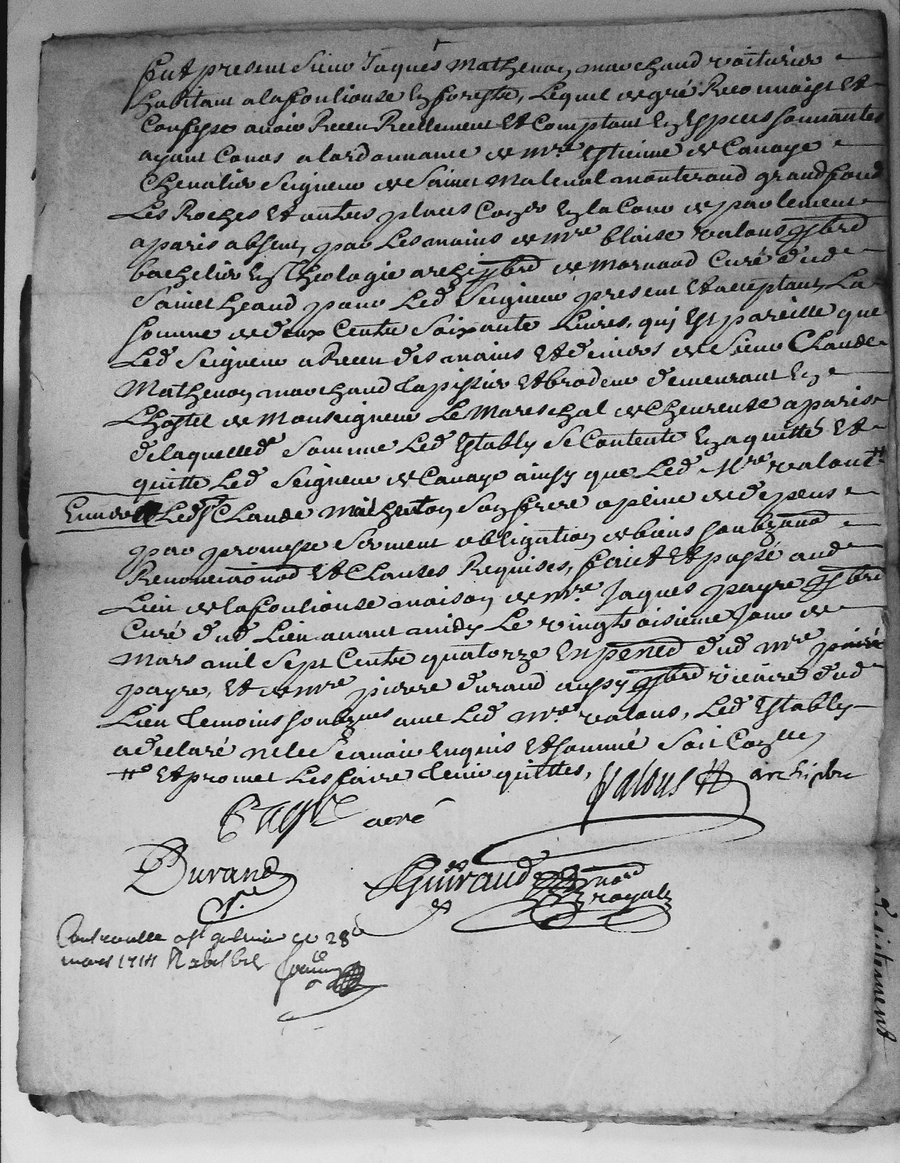 fut present Sieur Jaques Mathevon marchand voiturier
habitant a lafouliouse En forests, Lequel de gré Reconnoist Et
Confesse avoir Receu Reellement Et Comptant En Especes sonnantes
ayant Cours a lordonnance de mre Estienne de Canaye
Chevalier Seigneur de Saint
Les Roches Et autres places Coner En la Cour de parlement
a paris absent, par Les mains de mre blaise valous psbre
bachelier En theologie archipbre de Mornand Curé dud
Saint heand pour Led Seigneur present Et acceptant, La
somme de deux Cents Soixante Livres, qui Est pareille que
Led Seigneur a Receu des mains Et deniers de Sieur Claude
Mathevon marchand Tapissier Et brodeur demeurant En
Lhostel de Monseigneur Le Mareschal de Chevreuse a paris
de laquelle Somme Led Estably Se Contente En a quitté Et
quitte Led Seigneur de Canaye ainsy que Led Mre valous #
Envers Led Sr Claude Mathevon Son frere a peine de depens
par promesse Serment obligation de biens soubzmon
Renonciaons Et Clauses Requises, faict Et passé aud
Lieu de lafoulliouse maison de mre Jaques payre psbre
Curé dud Lieu avant midy Le vingt Jour de
Mars mil Sept Cents quatorze En pence dud mre
payre, Et de mre pierre durand aussy psbre vicaire dud
Lieu temoins soubznes avec Led Mre valous, Led Estably
a declaré ne le Scavoir Enquis Et sommé Soit Conlle
# Et promet Les faire tenir quittes,
Valous archiptre
Payre curé
Durand
Guiraud nore royal
Controolle a st galmier ce 28e
mars 1714